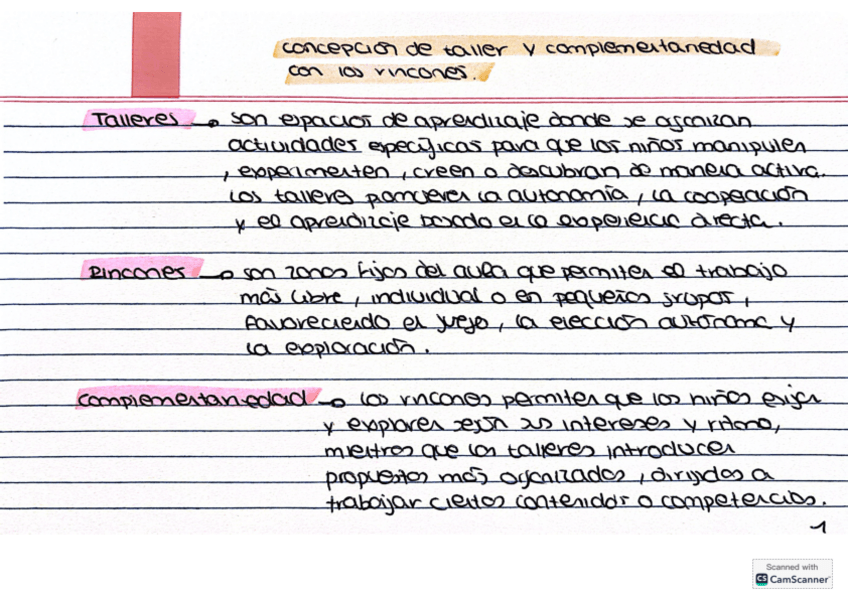 concepción de taller y complementariedad
con los rincones.
Talleres → son espacios de aprendizaje donde se organizan
actividades específicas para que los niños manipulen
, experimenten, creen o descubran de manera activa.
Los talleres promueven la autonomía, la cooperación
y el aprendizaje basado en la experiencia directa.
Rincones → son zonas fijas del aula que permiten el trabajo
más libre, individual o en pequeños grupos,
favoreciendo el juego, la elección autónoma y
la exploración.
complementariedad → los rincones permiten que los niños elijan
y exploren según sus intereses y ritmo,
mientras que los talleres introducen
propuestas más organizadas, dirigidas a
trabajar ciertos contenidos o competencias.
1
Scanned with
CS CamScanner